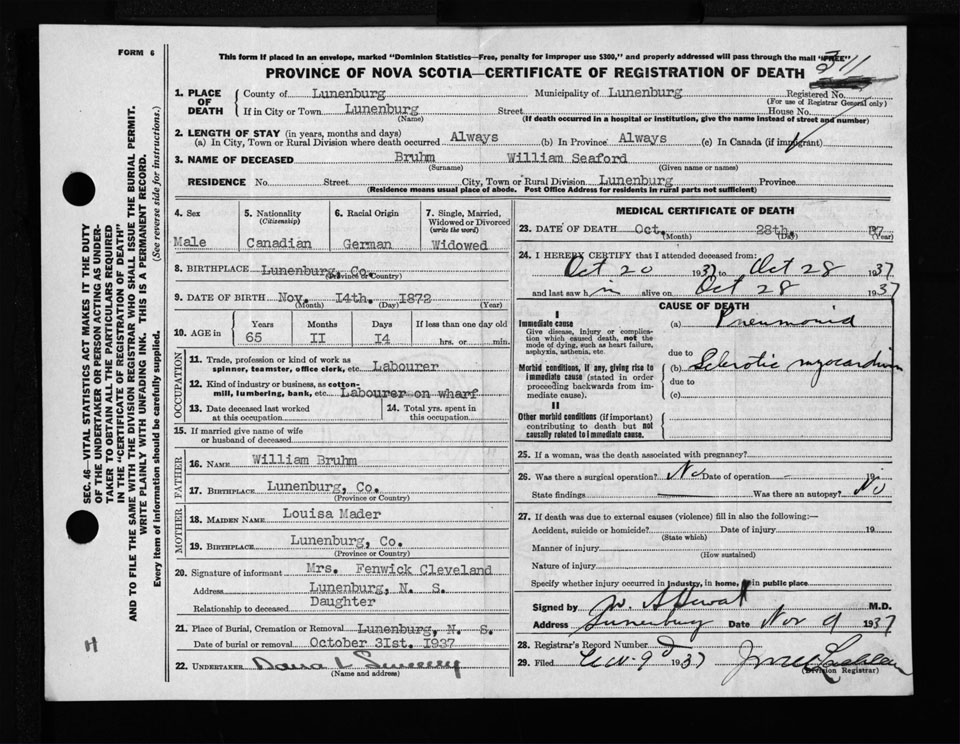 FORM 6
This form if placed in an envelope, marked "Dominion Statistics—Free, penalty for improper use $300," and properly addressed will pass through the mail "FREE"
PROVINCE OF NOVA SCOTIA—CERTIFICATE OF REGISTRATION OF DEATH
311
1. PLACE OF DEATH
County of Lunenburg Municipality of Lunenburg Registered No.
(For use of Registrar General only)
If in City or Town Lunenburg Street House No.
(Name) (If death occurred in a hospital or institution, give the name instead of street and number)
2. LENGTH OF STAY (in years, months and days)
(a) In City, Town or Rural Division where death occurred Always (b) In Province Always (c) In Canada (if immigrant)
3. NAME OF DECEASED Bruhm William Seaford
(Surname) (Given name or names)
RESIDENCE No. Street City, Town or Rural Division Lunenburg Province
(Residence means usual place of abode. Post Office Address for residents in rural parts not sufficient)
4. Sex 5. Nationality (Citizenship) 6. Racial Origin 7. Single, Married, Widowed or Divorced (write the word)
Male Canadian German Widowed
8. BIRTHPLACE Lunenburg, Co.
(Province or Country)
9. DATE OF BIRTH Nov. 14th. 1872
(Month) (Day) (Year)
10. AGE in Years Months Days If less than one day old
65 II I4 hrs. or min.
OCCUPATION
11. Trade, profession or kind of work as spinner, teamster, office clerk, etc. Labourer
12. Kind of industry or business, as cotton-mill, lumbering, bank, etc. Labourer on wharf
13. Date deceased last worked at this occupation
14. Total yrs. spent in this occupation
15. If married give name of wife or husband of deceased
FATHER
16. NAME William Bruhm
17. BIRTHPLACE Lunenburg, Co.
(Province or Country)
MOTHER
18. MAIDEN NAME Louisa Mader
19. BIRTHPLACE Lunenburg, Co.
(Province or Country)
20. Signature of informant Mrs. Fenwick Cleveland
Address Lunenburg, N. S.
Relationship to deceased Daughter
21. Place of Burial, Cremation or Removal Lunenburg, N. S.
Date of burial or removal October 3Ist. 1937
22. UNDERTAKER
(Name and address)
MEDICAL CERTIFICATE OF DEATH
23. DATE OF DEATH Oct. 28th. 37
(Month) (Day) (Year)
24. I HEREBY CERTIFY that I attended deceased from:
Oct 20 1937 to Oct 28 1937
and last saw him alive on Oct 28 1937
CAUSE OF DEATH
I
Immediate cause
Give disease, injury or complication which caused death, not the mode of dying, such as heart failure, asphyxia, asthenia, etc.
(a) Pneumonia
due to
Morbid conditions, if any, giving rise to immediate cause (stated in order proceeding backwards from immediate cause).
(b) Sclerotic myocardium
due to
(c)
II
Other morbid conditions (if important) contributing to death but not causally related to immediate cause.
25. If a woman, was the death associated with pregnancy?
26. Was there a surgical operation? No Date of operation 19
State findings Was there an autopsy? No
27. If death was due to external causes (violence) fill in also the following:—
Accident, suicide or homicide? Date of injury 19
(State which)
Manner of injury
(How sustained)
Nature of injury
Specify whether injury occurred in industry, in home, or in public place
Signed by M.D.
Address Lunenburg Date Nov 9 1937
28. Registrar's Record Number
29. Filed 9 1937
(Division Registrar)
SEC. 46—VITAL STATISTICS ACT MAKES IT THE DUTY OF THE UNDERTAKER OR PERSON ACTING AS UNDERTAKER TO OBTAIN ALL THE PARTICULARS REQUIRED IN THE "CERTIFICATE OF REGISTRATION OF DEATH" AND TO FILE THE SAME WITH THE DIVISION REGISTRAR WHO SHALL ISSUE THE BURIAL PERMIT.
WRITE PLAINLY WITH UNFADING INK. THIS IS A PERMANENT RECORD.
Every item of information should be carefully supplied. (See reverse side for instructions.)
H